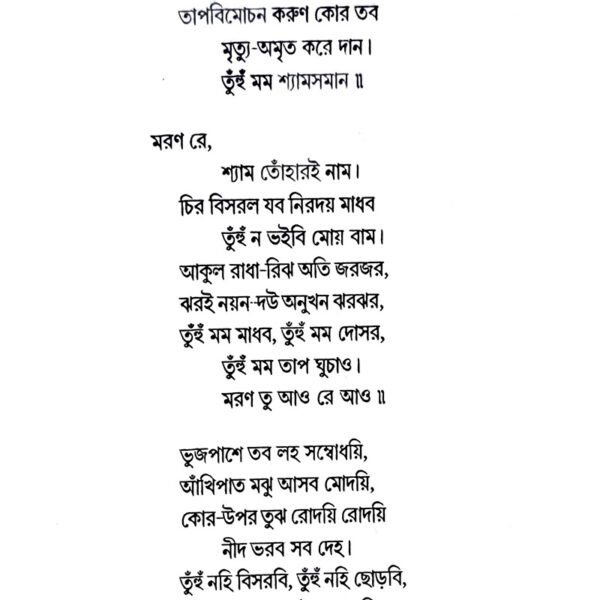 তাপবিমোচন করুণ কোর তব
মৃত্যু-অমৃত করে দান।
তুঁহুঁ মম শ্যামসমান॥
মরণ রে,
শ্যাম তোঁহারই নাম।
চির বিসরল যব নিরদয় মাধব
তুঁহুঁ ন ভইবি মোয় বাম।
আকুল রাধা-রিঝ অতি জরজর,
ঝরই নয়ন-দউ অনুখন ঝরঝর,
তুঁহুঁ মম মাধব, তুঁহুঁ মম দোসর,
তুঁহুঁ মম তাপ ঘুচাও।
মরণ তু আও রে আও॥
ভুজপাশে তব লহ সম্বোধয়ি,
আঁখিপাত মঝু আসব মোদয়ি,
কোর-উপর তুঝ রোদয়ি রোদয়ি
নীদ ভরব সব দেহ।
তুঁহুঁ নহি বিসরবি, তুঁহুঁ নহি ছোড়বি,